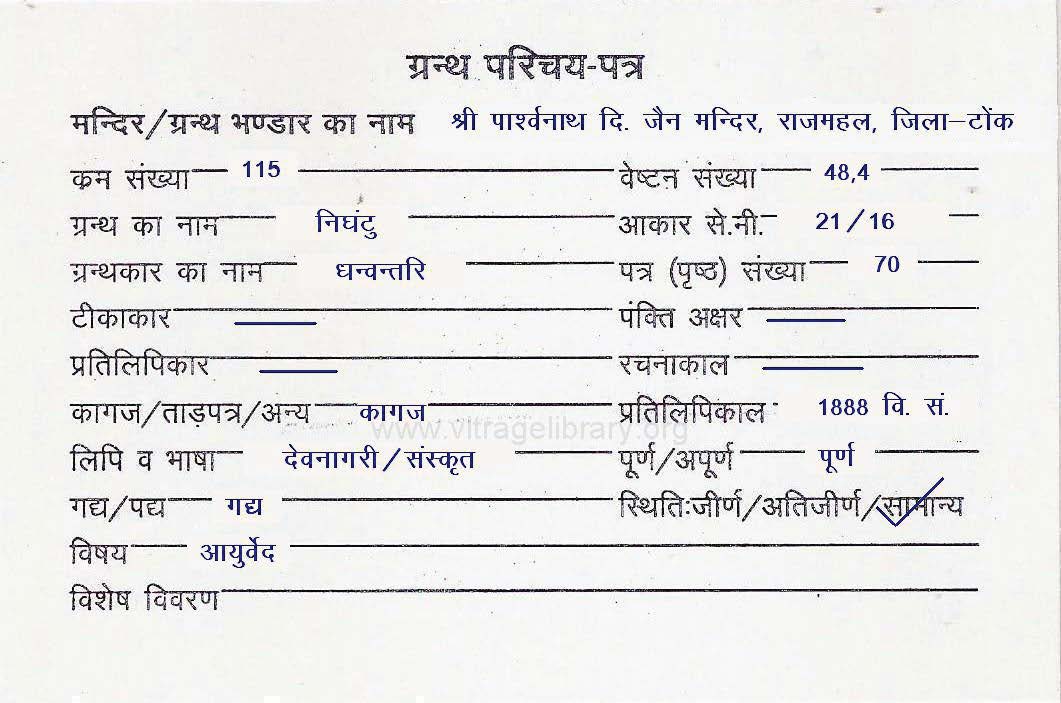 ग्रन्थ परिचय-पत्र
मन्दिर/ग्रन्थ भण्डार का नाम श्री पार्श्वनाथ दि. जैन मन्दिर, राजमहल, जिला-टोंक
कम संख्या 115 वेष्टन संख्या 48,4
ग्रन्थ का नाम निघंटु आकार से.मी. 21/16
ग्रन्थकार का नाम धन्वन्तरि पत्र (पृष्ठ) संख्या 70
टीकाकार पंक्ति अक्षर
प्रतिलिपिकार रचनाकाल
कागज/ताड़पत्र/अन्य कागज प्रतिलिपिकाल 1888 वि. सं.
www.vitragelibrary.org
लिपि व भाषा देवनागरी/संस्कृत पूर्ण/अपूर्ण पूर्ण
गद्य/पद्य गद्य स्थितिःजीर्ण/अतिजीर्ण/सामान्य
विषय आयुर्वेद
विशेष विवरण